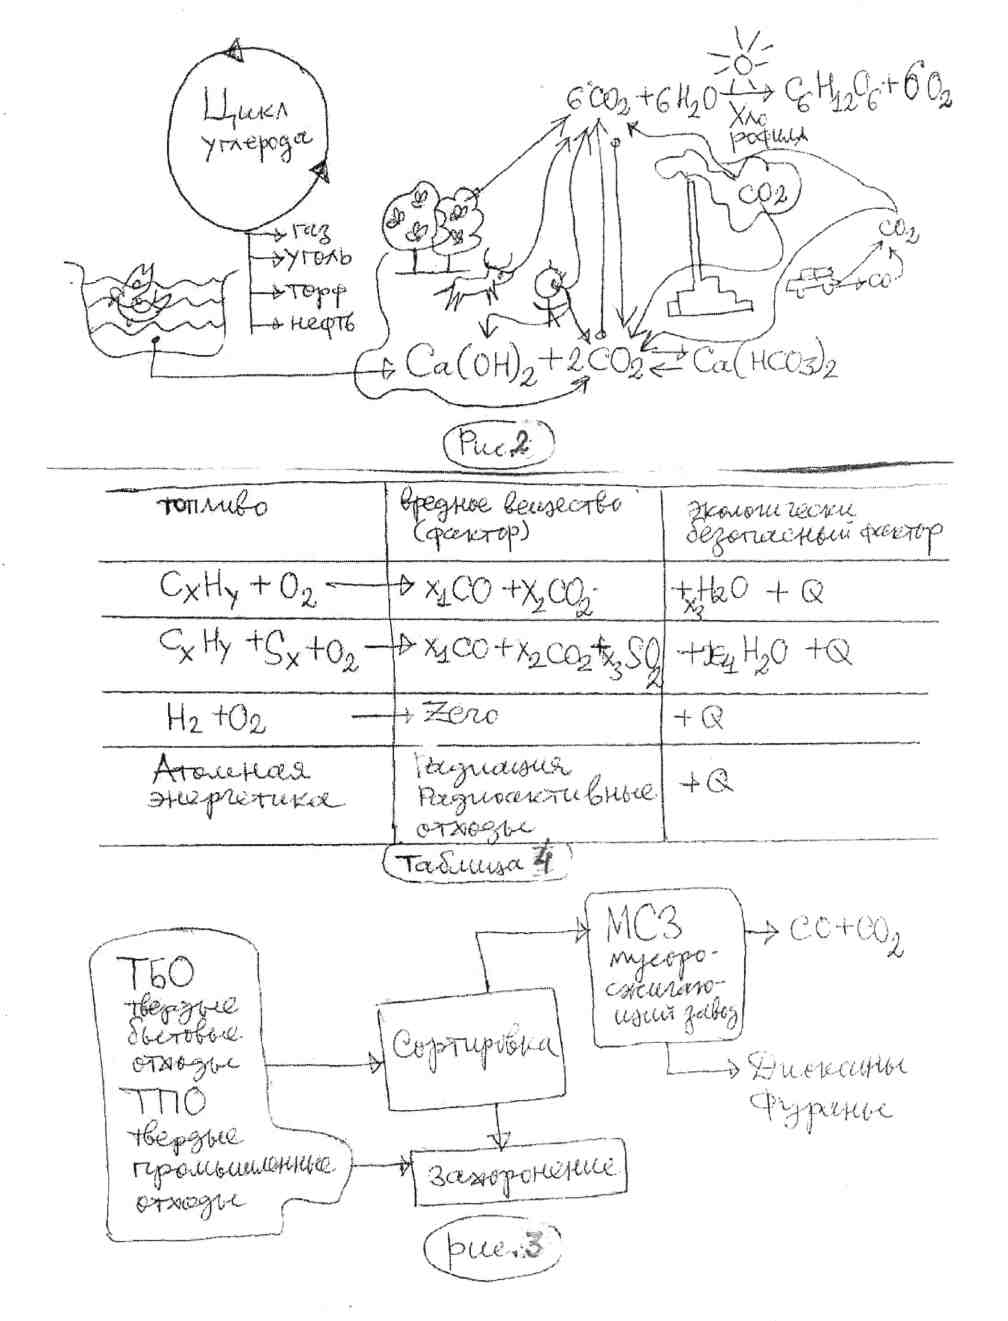 Цикл
углерода
газ
уголь
торф
нефть
6CO2 + 6H2O → C6H12O6 + 6O2
Хло
рофилл
CO2
CO2
CO
Ca(OH)2 + 2CO2 ⇄ Ca(HCO3)2
Рис. 2
топливо
вредное вещество
(фактор)
экологически
безопасный фактор
CxHy + O2 → x1CO + x2CO2 + x3H2O + Q
CxHy + Sx + O2 → x1CO + x2CO2 + x3SO2 + x4H2O + Q
H2 + O2 → Zero + Q
Атомная
энергетика
Радиация
Радиоактивные
отходы
+ Q
Таблица 4
ТБО
твердые
бытовые
отходы
ТПО
твердые
промышленные
отходы
Сортировка
Захоронение
МСЗ
мусоро-
сжигаю-
щий завод
CO + CO2
Диоксаны
Фураны
рис. 3